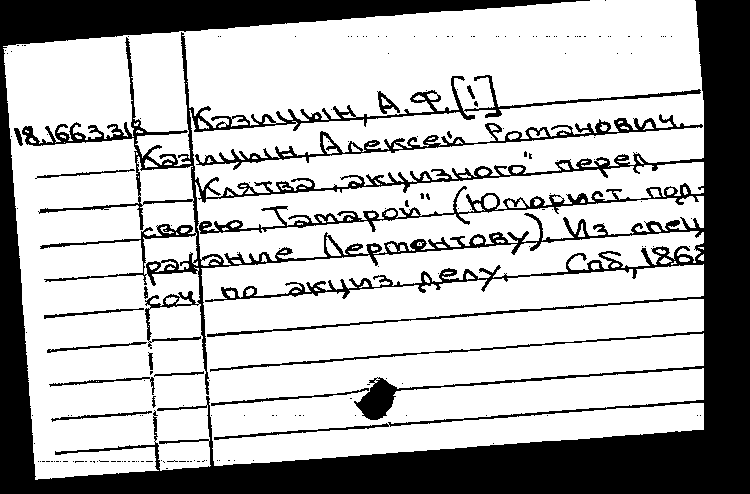 Казицын, А. Ф. [!]
18.166.3.318
Казицын, Алексей Романович.
Клятва „акцизного" перед
своею „Тамарой". (Юморист. под-
ражание Лермонтову). Из спец.
соч. по акциз. делу. Спб., 1868